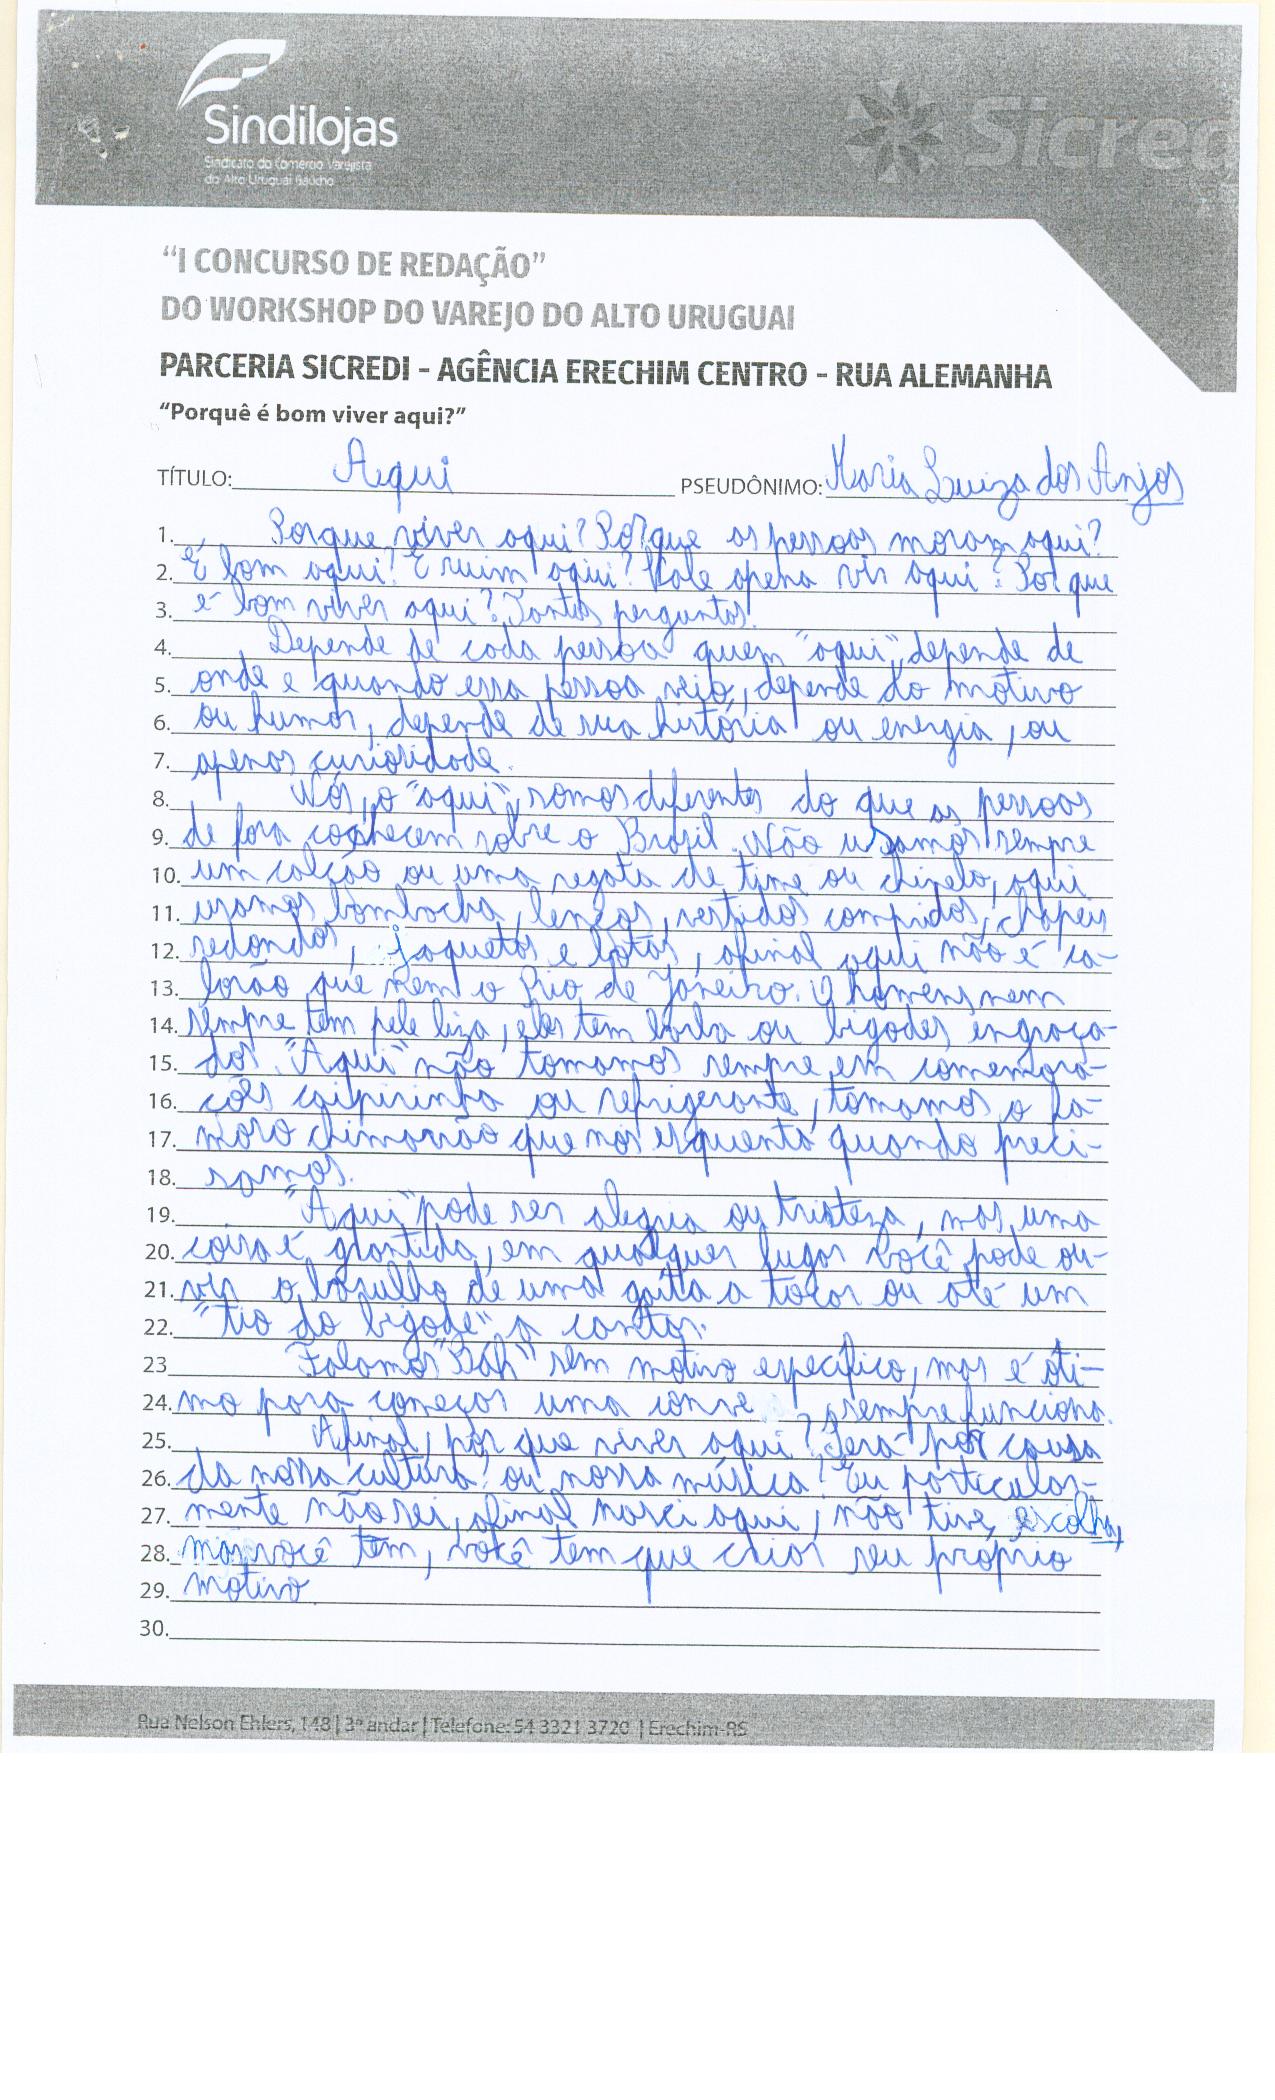 Sindilojas
Sindicato do Comércio Varejista
do Alto Uruguai Gaúcho
Sicred
“I CONCURSO DE REDAÇÃO”
DO WORKSHOP DO VAREJO DO ALTO URUGUAI
PARCERIA SICREDI - AGÊNCIA ERECHIM CENTRO - RUA ALEMANHA
“Porquê é bom viver aqui?”
TÍTULO: Aqui PSEUDÔNIMO: Maria Luiza dos Anjos
1. Porque viver aqui? Porque as pessoas moram aqui?
2. É bom aqui? É ruim aqui? Vale apena vir aqui? Por que
3. é bom viver aqui? Tantas perguntas!
4. Depende de cada pessoa quem "aqui", depende de
5. onde e quando essa pessoa veio, depende do motivo
6. ou humor, depende de sua história ou energia, ou
7. apenas curiosidade.
8. Nós, o "aqui", somos diferentes do que as pessoas
9. de fora conhecem sobre o Brasil. Não usamos sempre
10. um calção ou uma regata de time ou chinelo, aqui
11. usamos bombacha, lenços, vestidos compridos, chapéus
12. redondos, jaquetas e botas, afinal aqui não é ca-
13. lorão que nem o Rio de Janeiro. O homens nem
14. sempre tem pele liza, eles tem barba ou bigodes engraça-
15. dos. "Aqui" não tomamos sempre em comemora-
16. ções caipirinha ou refrigerante, tomamos o fa-
17. moso chimarrão que nos esquenta quando preci-
18. samos.
19. "Aqui" pode ser alegria ou tristeza, mas uma
20. coisa é garantida, em qualquer lugar você pode ou-
21. vir o barulho de uma gaita a tocar ou até um
22. "tio do bigode" a cantar.
23 Falamos "Bah" sem motivo específico, mas é óti-
24. mo para começar uma conve , sempre funciona.
25. Afinal, por que viver aqui? Será por causa
26. da nossa cultura? ou nossa música? Eu particular-
27. mente não sei, afinal nasci aqui, não tive escolha,
28. mas você tem, você tem que criar seu próprio
29. motivo
30.
Rua Nelson Ehlers, 148 | 3º andar | Telefone: 54 3321 3720 | Erechim-RS